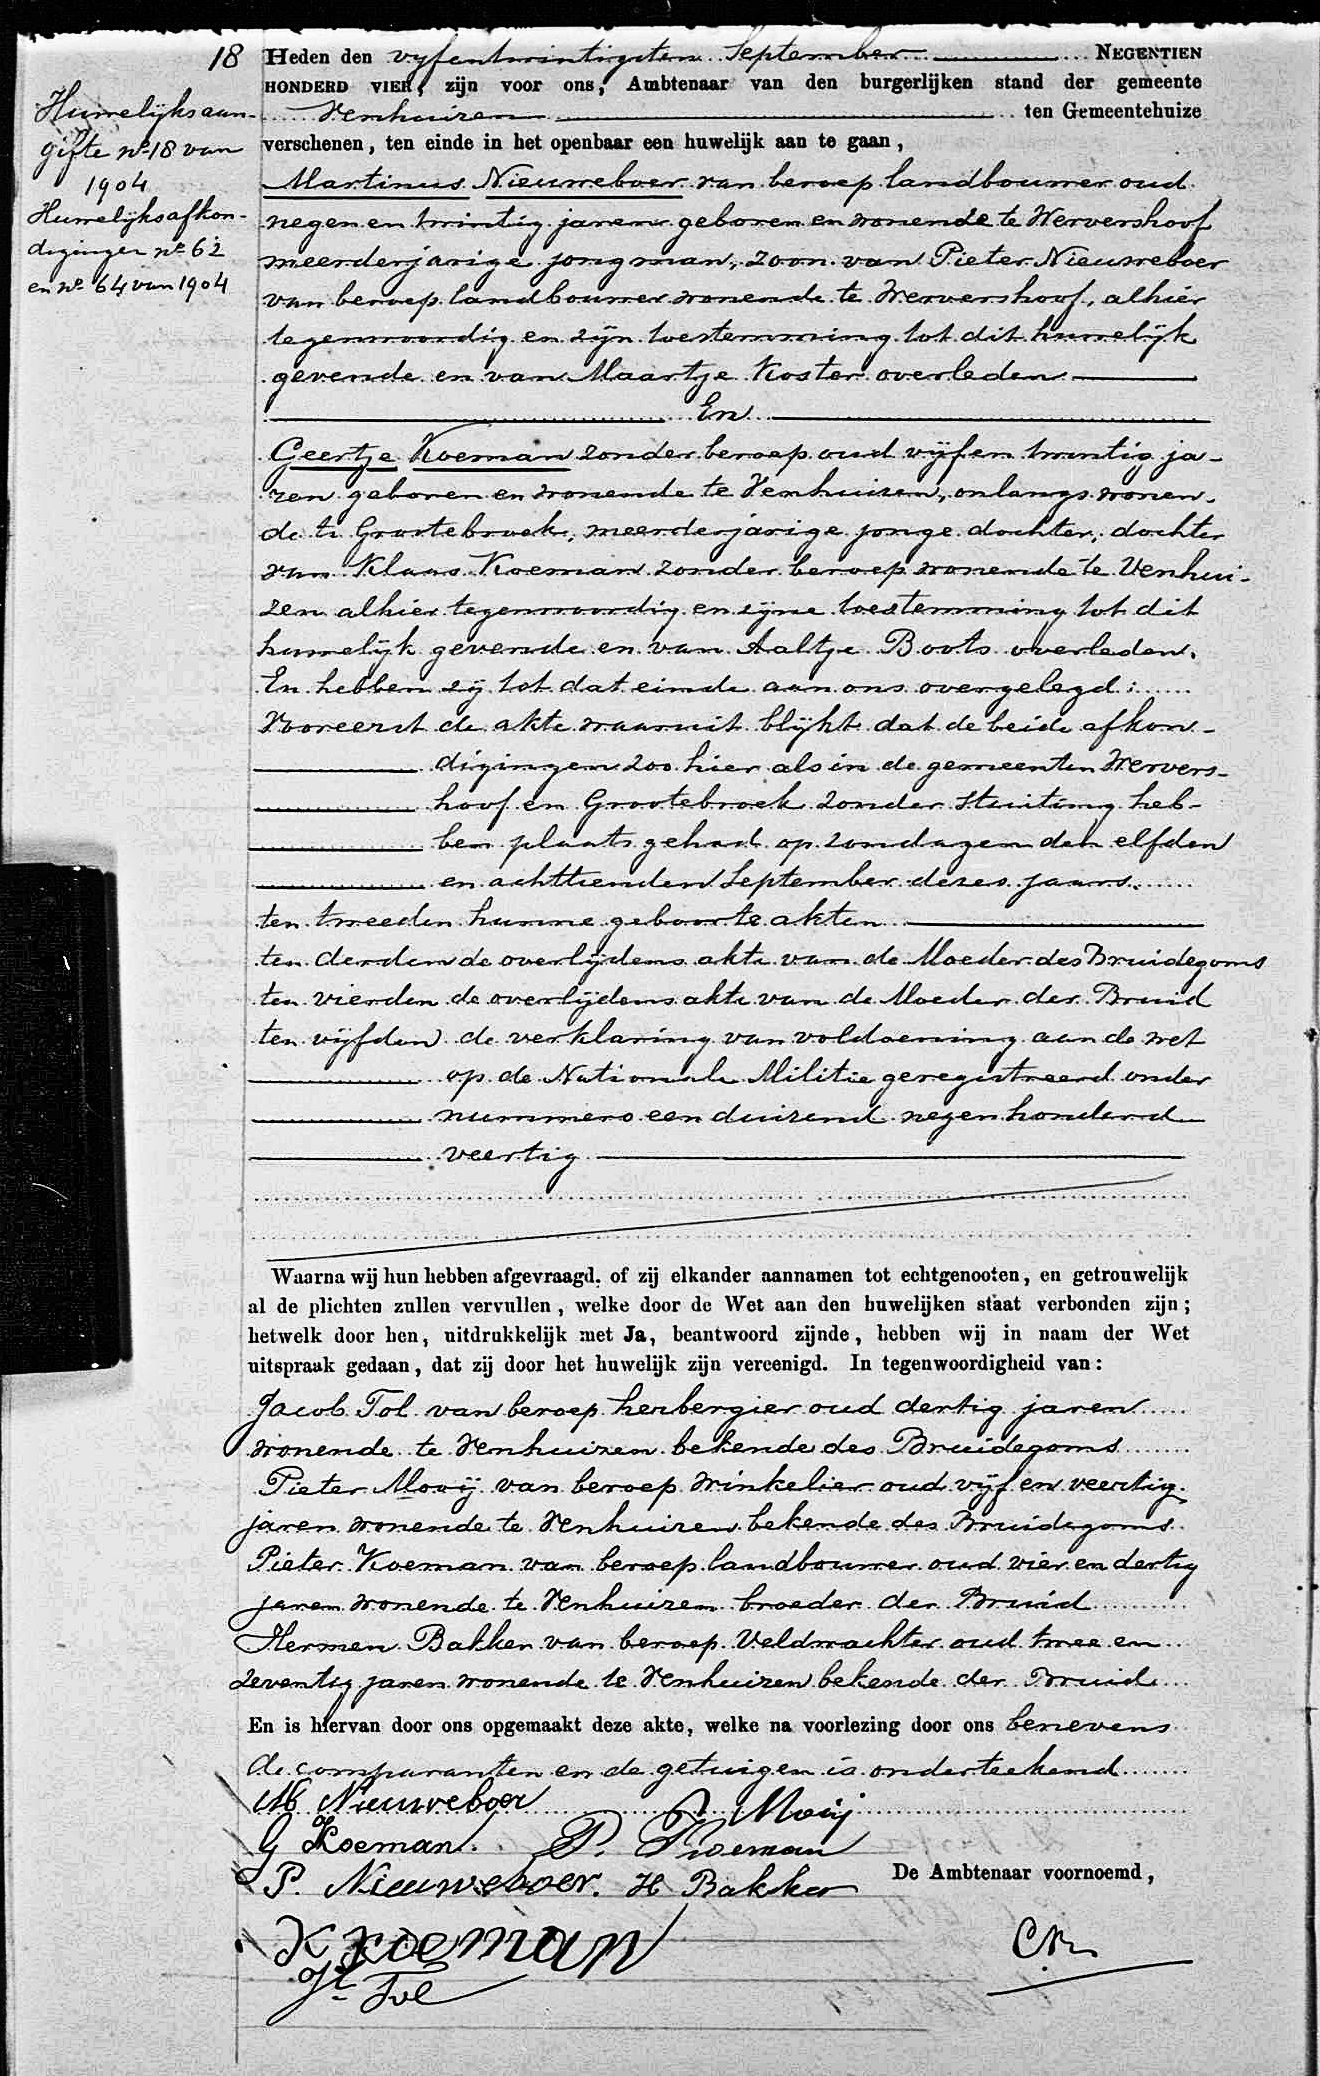 18
Huwelijksaan-
gifte no 18 van
1904
Huwelijksafkon-
digingen no 62
en no 64 van 1904
Heden den vyfentwintigsten September NEGENTIEN
HONDERD VIER, zijn voor ons, Ambtenaar van den burgerlijken stand der gemeente
Venhuizen ten Gemeentehuize
verschenen, ten einde in het openbaar een huwelijk aan te gaan,
Martinus Nieuweboer van beroep landbouwer oud
negen en twintig jaren geboren en wonende te Wervershoof
meerderjarige jongman, zoon van Pieter Nieuweboer
van beroep landbouwer wonende te Wervershoof, alhier
tegenwoordig en zijn toestemming tot dit huwelijk
gevende en van Maartje Koster overleden
En
Geertje Koeman zonder beroep oud vijf en twintig ja-
ren geboren en wonende te Venhuizen, onlangs wonen-
de te Grootebroek, meerderjarige jonge dochter, dochter
van Klaas Koeman zonder beroep wonende te Venhui-
zen alhier tegenwoordig en zijne toestemming tot dit
huwelijk gevende en van Aaltje Boots overleden.
En hebben zij tot dat einde aan ons overgelegd:
Vooreerst de akte waaruit blijkt dat de beide afkon-
digingen zoo hier als in de gemeenten Wervers-
hoof en Grootebroek zonder stuiting heb-
ben plaats gehad op zondagen den elfden
en achttienden September dezes jaars.
ten tweeden hunne geboorte akten
ten derden de overlijdens akte van de Moeder des Bruidegoms
ten vierden de overlijdens akte van de Moeder der Bruid
ten vijfden de verklaring van voldoening aan de wet
op de Nationale Militie geregistreerd onder
nummero een duizend negen honderd
veertig
Waarna wij hun hebben afgevraagd, of zij elkander aannamen tot echtgenooten, en getrouwelijk
al de plichten zullen vervullen, welke door de Wet aan den huwelijken staat verbonden zijn;
hetwelk door hen, uitdrukkelijk met Ja, beantwoord zijnde, hebben wij in naam der Wet
uitspraak gedaan, dat zij door het huwelijk zijn vereenigd. In tegenwoordigheid van:
Jacob Tol van beroep herbergier oud dertig jaren
wonende te Venhuizen bekende des Bruidegoms
Pieter Mooij van beroep winkelier oud vijf en veertig
jaren wonende te Venhuizen bekende des Bruidegoms
Pieter Koeman van beroep landbouwer oud vier en dertig
jaren wonende te Venhuizen broeder der Bruid
Hermen Bakker van beroep Veldwachter oud twee en
zeventig jaren wonende te Venhuizen bekende der Bruid
En is hiervan door ons opgemaakt deze akte, welke na voorlezing door ons benevens
de comparanten en de getuigen is onderteekend
M Nieuweboer P. Mooij
G Koeman. P. Koeman
P. Nieuweboer. H Bakker De Ambtenaar voornoemd,
K Koeman
Jb Tol